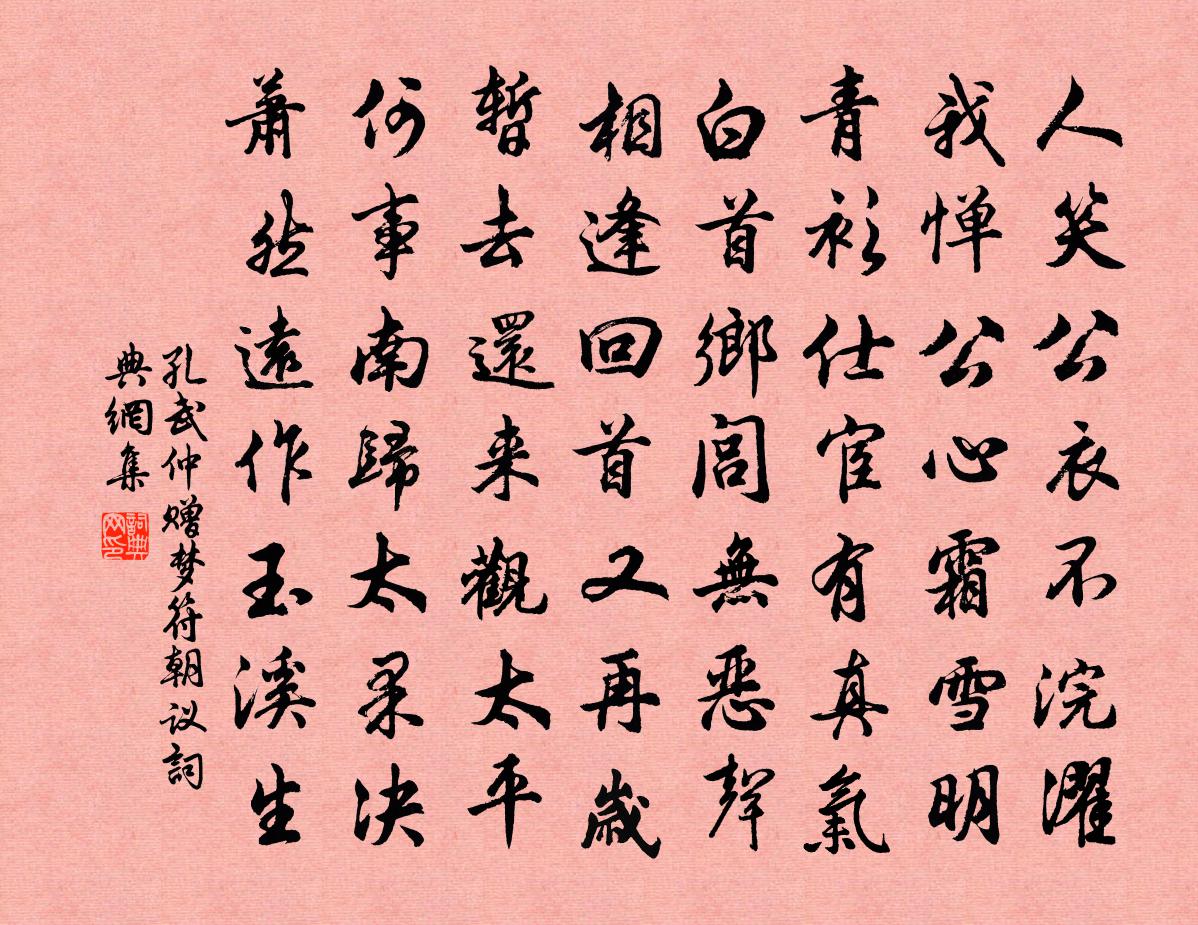 人笑公衣不浣濯
我惮公心霜雪明
青衫仕宦有真氣
白首鄉閭無惡聲
相逢回首又再歲
暫去還来觀太平
何事南歸太果决
蕭然遠作玉溪生
孔武仲赠梦符朝议詞
典網集
詞典网印